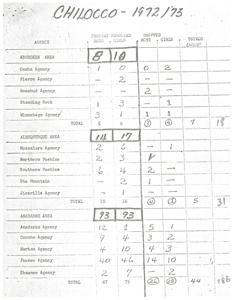 CHILOCCO - 1972/73
AGENCY PRESENT ENROLLED DROPPED TOTALS
BOYS GIRLS BOYS GIRLS
ABERDEEN AREA 8 10
Omaha Agency 1 0 0 2
Pierre Agency - 2 - -
Rosebud Agency - 2 -
Standing Rock 1 3 - 1
Winnebago Agency 3 1 - 1
TOTAL 7 18
ALBUQUERQUE AREA 14 17
Mescalero Agency 2 6 - 1
Northern Pueblos 2 3
Southern Pueblos 6 4 2 -
Ute Mountain - 2 1 -
Jicarilla Agency - 1 -
TOTAL 10 16 5 31
ANADARKO AREA 93 93
Anadarko Agency 12 5 1
Concho Agency 4 4 3 2
Horton Agency 4 10 4 3
Pawnee Agency 40 46 14 10
Shawnee Agency 2 7 - 2
TOTAL 67 75 44 186